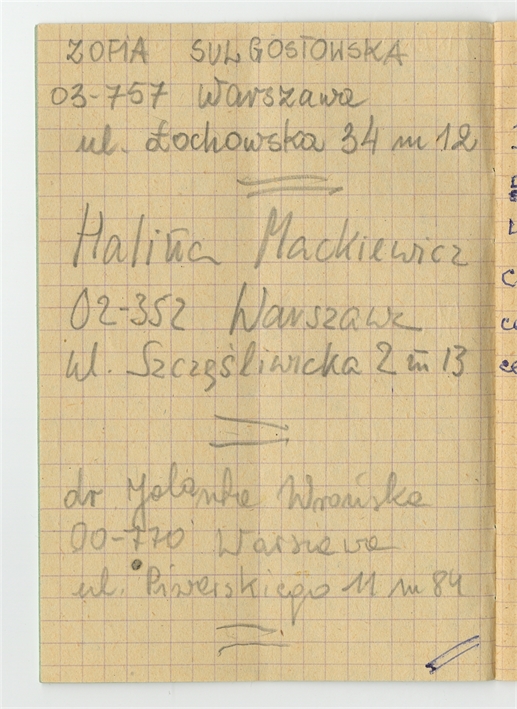 ZOFIA SULGOSTOWSKA
03-757 Warszawa
ul. Łochowska 34 m 12
Halina Mackiewicz
02-352 Warszawa
ul. Szczęśliwicka 2 m 13
dr Jolanta Wrońska
00-770 Warszawa
ul. 11 m 84